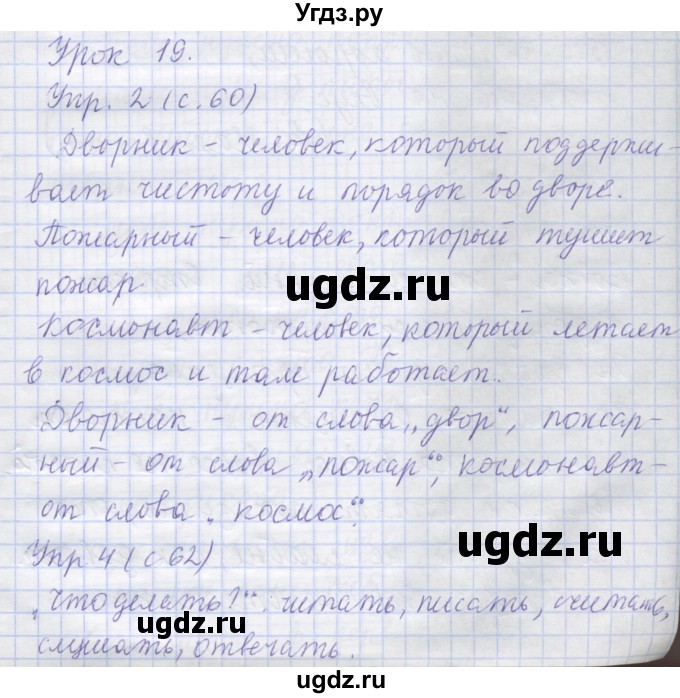 Угдз.ру
Урок 19.
Упр. 2 (с. 60)
Дворник - человек, который поддержи-
вает чистоту и порядок во дворе.
Пожарный - человек, который тушит
пожар
Космонавт - человек, который летает
в космос и там работает.
Дворник - от слова „двор“, пожар-
ный - от слова „пожар“, космонавт -
от слова „космос“.
Упр 4 (с 62)
„Что делать?“: читать, писать, считать,
слушать, отвечать.
ugdz.ru
ugdz.ru
ugdz.ru
ugdz.ru